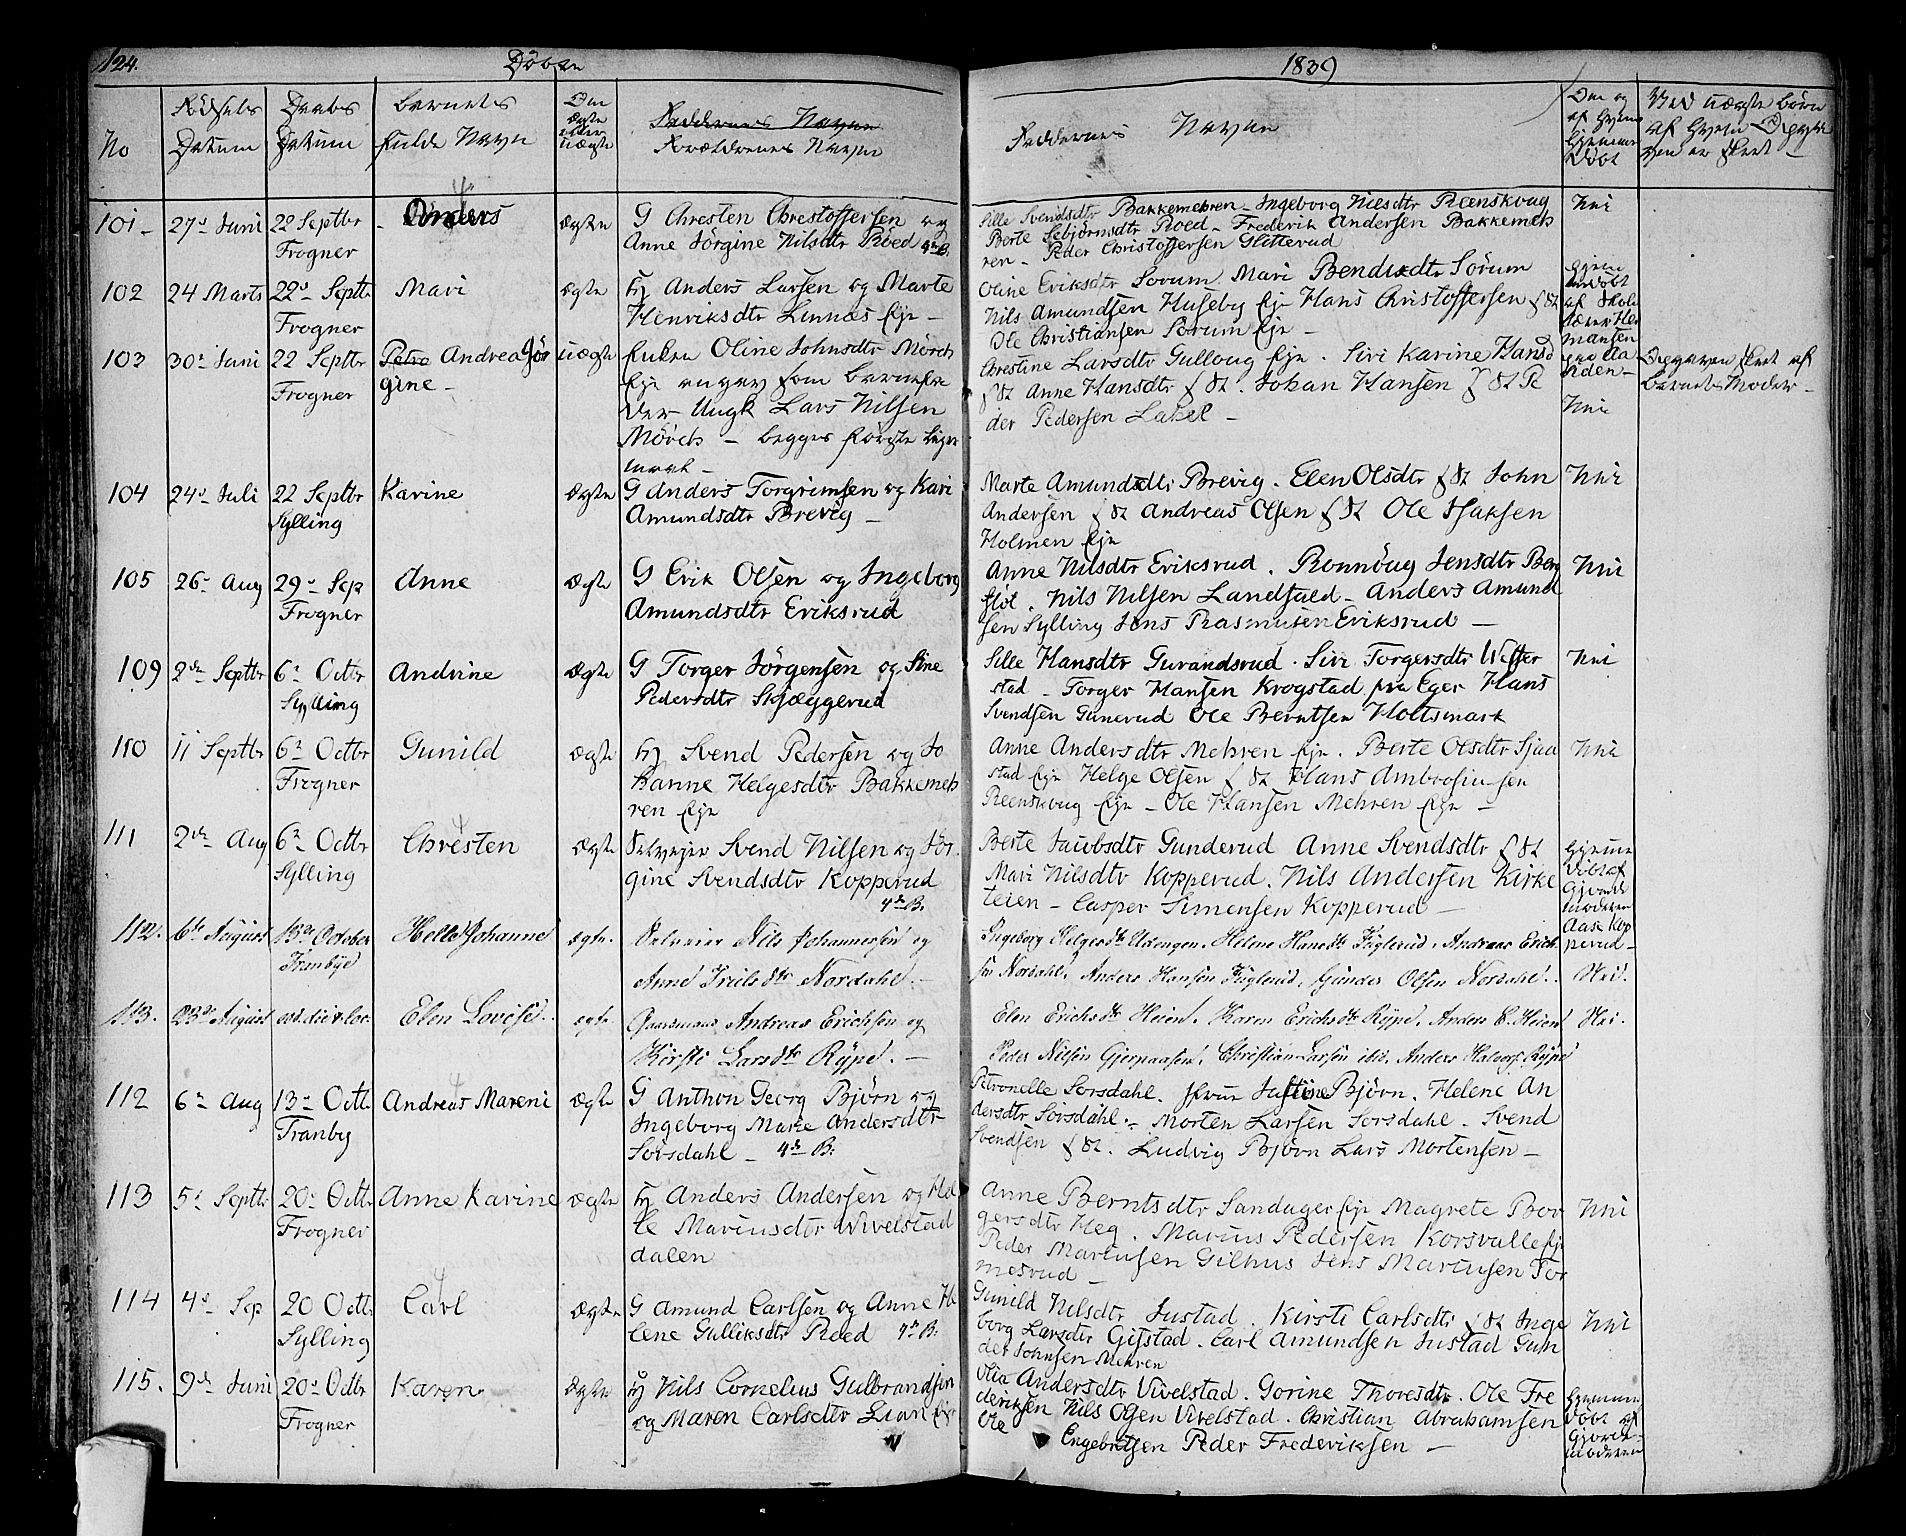 124. Döbte 1839
No
Födsels Datum
Daabs Datum
Barnets fulde Navn
Om ægte eller uægte
Faddernes Navne
Forældrenes Navne
Faddernes Navne
Om og af hvem hjemmedöbt
Ved uægte börn af hvem Opgivelsen er skeet —
101 - 27de Juni 22 Septbr Frogner
Anders
ægte
G Chresten Chrestoffersen og
Anne Jörgine Nilsdtr Röed 4de B.
Sille Svendsdtr Bakkemehren - Ingeborg Nilsdtr Reenskoug
Berte Sebjörnsdtr Roed - Frederik Andersen Bakkemeh
ren - Peder Christoffersen Glitterud
Nei
102 24 Marts 22de Septbr Frogner
Mari
ægte
Hj Anders Larsen og Marte
Henriksdtr Linnæs Eje -
Oline Eriksdtr Sorum Mari Bendixdtr Sörum
Nils Amundsen Huseby Eje Hans Christoffersen f St
Ole Christiansen Sorum Eje -
hjemmedöbt af Skolelærer Hermansen
103 30de Juni 22 Septbr Frogner
Petre Andrea Jör
gine -
uægte
Enken Oline Johnsdtr Mörch
Eje angav som barnefa
der Ungk Lars Nilsen
Mörch - begges förste leier
maal -
Chrestine Larsdtr Gulloug Eje . Siri Karine Hansd
f St Anne Hansdtr f St . Johan Hansen f St Pe
der Pedersen Lakel -
Nei
Opgaven skeet af
barnets Moder -
104 24de Juli 22 Septbr Sylling
Karine
ægte
G Anders Torgrimsen og Kari
Amundsdtr Brevig -
Marte Amundsdtr Brevig . Elen Olsdtr f St John
Andersen f St Andreas Olsen f St Ole Isaksen
Holmen Eje
Nei
105 26de Aug 29de Sep Frogner
Anne
ægte
G Erik Olsen og Ingeborg
Amundsdtr Eriksrud
Anne Nilsdtr Eriksrud . Ronnöug Jensdtr Berg
flöt . Nils Nilsen Landfald - Anders Amund
sen Sylling Jens Rasmusen Eriksrud -
Nei
109 2den Septbr 6te Octbr Sylling
Andrine
ægte
G Torger Jörgensen og Sine
Pedersdtr Skjæggerud
Sille Hansdtr Gurandsrud . Siri Torgersdtr Wefser
stad - Torger Hansen Krogstad fra Eger Hans
Svendsen Gunerud Ole Berntsen Holtsmark
Nei
110 11 Septbr 6te Octbr Frogner
Gunild
ægte
Hj Svend Pedersen og Jo
hanne Helgesdtr Bakkemeh
ren Eje
Anne Andersdtr Mehren Eje . Berte Olsdtr Sjaa
stad Eje Helge Olsen f St Hans Ambrosiussen
Reenskoug Eje - Ole Hansen Mehren Eje -
Nei
111 2den Aug 6te Octbr Sylling
Chresten
ægte
Selveier Svend Nilsen og Jör
gine Svendsdtr Kopperud
4de B.
Berte Jacobsdtr Gunderud Anne Svendsdtr f St
Mari Nilsdtr Kopperud . Nils Andersen Kirke
teien - Casper Simensen Kopperud -
hjemme
döbt af
Gjorde
moderen
Aase Kop
perud -
112. 6te August 13de October Tranbye
Helle Johanne
ægte.
Selveier Nils Johannersen og
Anne Trulsdtr Nordahl. -
Ingeborg Helgesdtr Eldengen. Helene Hansdtr Fuglerud. Andreas Erich
sen Nordahl. Anders Hansen Fuglerud, Gunder Olsen Nordahl.
Nei.
113. 23de August eod. die & loc.
Elen Lovise.
ægte.
Gaardmand Andreas Erichsen og
Kirsti Larsdtr Rype. -
Elen Erichsdtr Heien. Karen Erichsdtr Rype, Anders E. Heien
Peder Nilsen Gjerpaasen. Christian Larsen ibid. Anders Halvors. Rype
Nei.
112 6te Aug 13de Octbr Tranby
Andreas Mareni
ægte
G Anthon Georg Björn og
Ingeborg Marie Andersdtr
Sörsdahl - 4de B:
Petronelle Sorsdahl. Fru Justine Björn. Helene An
dersdtr Sörsdahl. - Morten Larsen Sorsdahl - Svend
Svendsen f St. Ludvig Björn Lars Mortensen -
113 5te Septbr 20de Octbr Frogner
Anne Karine
ægte
Hj Anders Andersen og Hel
le Mariusdtr Wivelstad
dalen
Anne Berntsdtr Sandager Eje Magrete Bor
gersdtr Heg . Marius Pedersen Korsvalle Eje
Peder Martusen Gilhus Jens Martusen Tor
mesrud -
Nei
114 4de Sep 20 Octbr Sylling
Carl
ægte
G Amund Carlsen og Anne He
lene Gulliksdtr Roed 4de B:
Gunild Nilsdtr Justad . Kirsti Carlsdtr f St Inge
borg Larsdtr Gifstad . Carl Amundsen Justad Gun
der Johnsen Mehren
Nei
115. 9de Juni 20de Octbr Frogner
Karen
ægte
Hj Nils Cornelius Gulbrandsen
og Maren Carlsdtr Lian Eje
Olia Andersdtr Vivelstad. Gorine Thoresdtr. Ole Fre
deriksen Nils Olsen Vivelstad . Christian Abrahamsen
Ole Engebretsen Peder Frederiksen -
hjemme
döbt af
Gjorde-
moderen